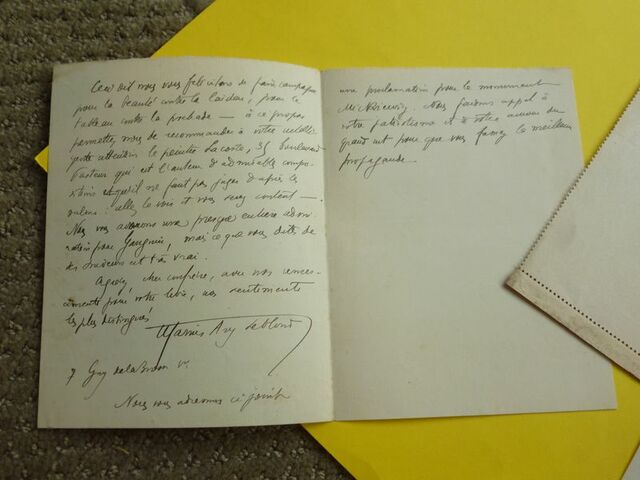 Ceci dit nous vous félicitons de faire campagne
pour la beauté contre la laideur, pour le
tableau contre la pochade — à ce propos
permettez nous de recommander à votre
attention le peintre Lacoste, 35 boulevard
Pasteur qui est l'auteur d'admirables compo-
sitions et qu'il ne faut pas juger d'après le
salon : allez le voir et vous serez content —
Nous vous avouerons une presque entière admi-
ration pour Gauguin, mais ce que vous dites de
ses suiveurs est très vrai.
Agréez, cher confrère, avec nos remer-
ciements pour votre lettre, nos sentiments
les plus distingués
Marius Ary Leblond
7 Guy de la Brosse Ve
Nous vous adressons ci joint
une proclamation pour le monument
Mickiewicz. Nous faisons appel à
votre patriotisme et à votre amour du
grand art pour que vous fassiez la meilleure
propagande.